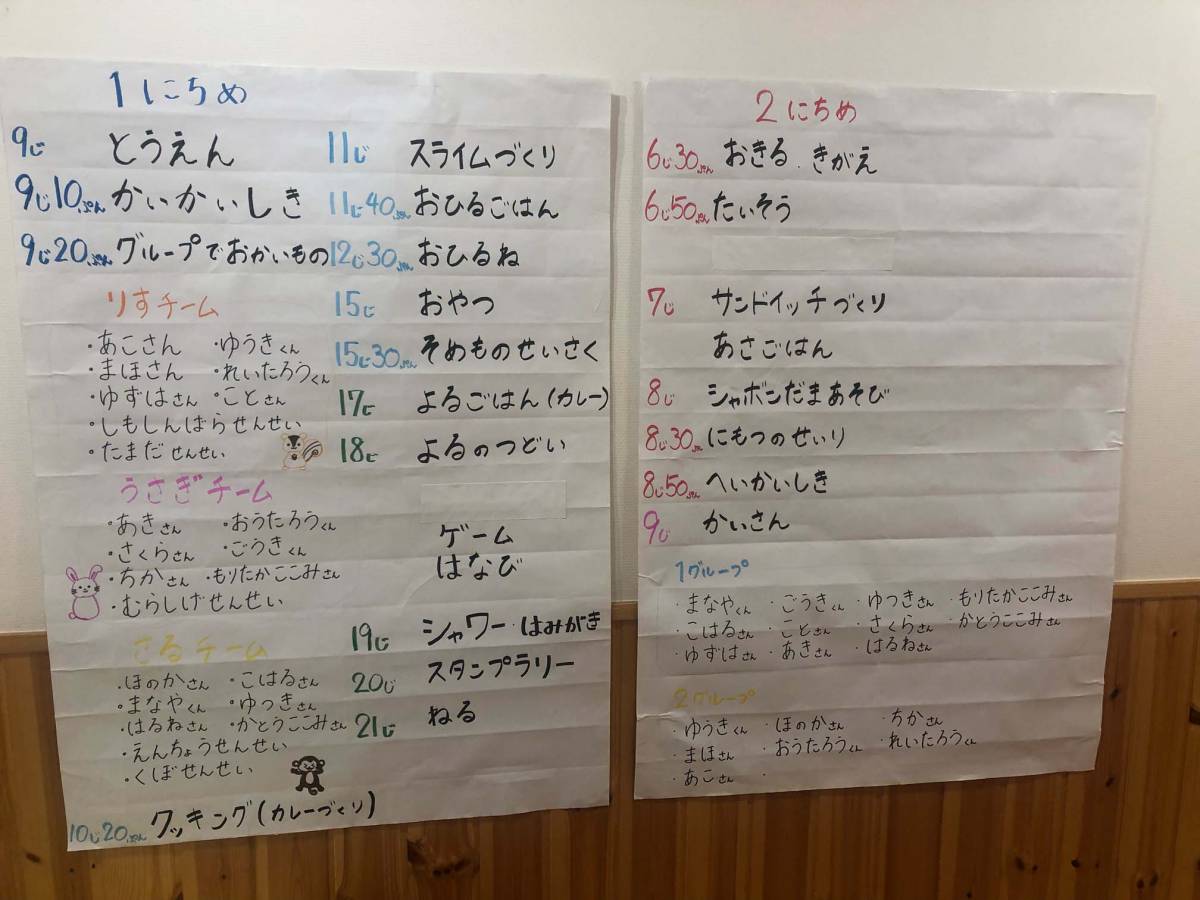 1にちめ
9じ とうえん
9じ10ぷん かいかいしき
9じ20ぷん グループでおかいもの
りすチーム
・あこさん ・ゆうきくん
・まほさん ・れいたろうくん
・ゆずはさん ・ことさん
・しもしんばらせんせい
・たまだせんせい
うさぎチーム
・あきさん ・おうたろうくん
・さくらさん ・ごうきくん
・ちかさん ・もりたかここみさん
・むらしげせんせい
さるチーム
・ほのかさん ・こはるさん
・まなやくん ・ゆっきさん
・はるねさん ・かとうここみさん
・えんちょうせんせい
・くぼせんせい
10じ20ぷん クッキング(カレーづくり)
11じ スライムづくり
11じ40ぷん おひるごはん
12じ30ぷん おひるね
15じ おやつ
15じ30ぷん そめものせいさく
17じ よるごはん(カレー)
18じ よるのつどい
ゲーム
はなび
19じ シャワー・はみがき
20じ スタンプラリー
21じ ねる
2にちめ
6じ30ぷん おきる.きがえ
6じ50ぷん たいそう
7じ サンドイッチづくり
あさごはん
8じ シャボンだまあそび
8じ30ぷん にもつのせいり
8じ50ぷん へいかいしき
9じ かいさん
1グループ
・まなやくん ・ごうきくん ・ゆつきさん ・もりたかここみさん
・こはるさん ・ことさん ・さくらさん ・かとうここみさん
・ゆずはさん ・あきさん ・はるねさん
2グループ
・ゆうきくん ・ほのかさん ・ちかさん
・まほさん ・おうたろうくん ・れいたろうくん
・あこさん ・